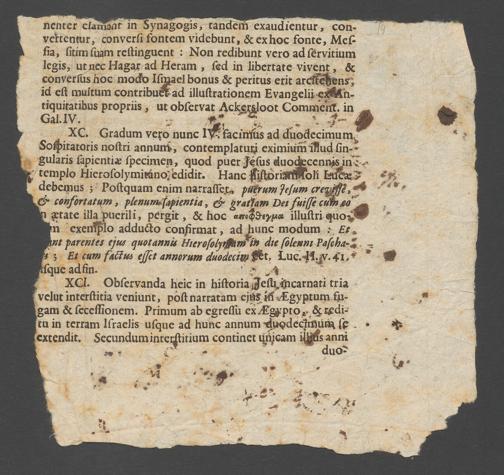 nenter clamant in Synagogis, tandem exaudientur, con-
vertentur, conversi fontem videbunt, & ex hoc fonte, Mes-
sia, sitim suam restinguent: Non redibunt vero ad servitium
legis, ut nec Hagar ad Heram, sed in libertate vivent, &
conversus hoc modo Ismael bonus & peritus erit arcitenens,
id est multum contribuet ad illustrationem Evangelii ex An-
tiquitatibus propriis, ut observat Ackersloot Comment. in
Gal. IV.
XC. Gradum vero nunc IV. facimus ad duodecimum
Sospitatoris nostri annum, contemplaturi eximium illud sin-
gularis sapientiæ specimen, quod puer Jesus duodecennis in
templo Hierosolymitano edidit. Hanc historiam soli Lucæ
debemus; Postquam enim narrasset, puerum Jesum crevisse,
& confortatum, plenum sapientia, & gratiam Dei fuisse cum eo
in ætate illa puerili, pergit, & hoc αποφθεγμα illustri quo-
dam exemplo adducto confirmat, ad hunc modum: Et
ibant parentes ejus quotannis Hierosolymam in die solenni Pascha-
tis; Et cum factus esset annorum duodecim &c. Luc. II. v. 41.
usque ad fin.
XCI. Observanda heic in historia Jesu incarnati tria
velut interstitia veniunt, post narratam ejus in Ægyptum fu-
gam & secessionem. Primum ab egressu ex Ægypto, & redi-
tu in terram Israelis usque ad hunc annum duodecimum se
extendit. Secundum interstitium continet unicam illius anni
duo-